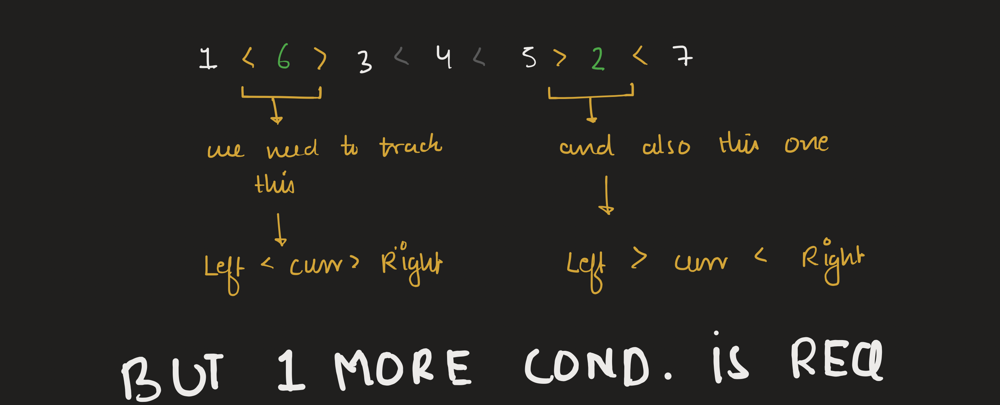 1 < 6 > 3 < 4 < 5 > 2 < 7
we need to track
this
and also this one
Left < curr > Right
Left > curr < Right
BUT 1 MORE COND. is REQ